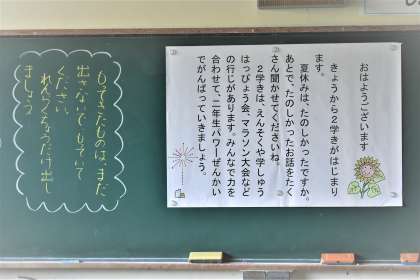 おはようございます
きょうから2学きがはじまり
ます。
夏休みは、たのしかったですか。
あとで、たのしかったお話をたく
さん聞かせてくださいね。
2学きは、えんそくや学しゅう
はっぴょう会、マラソン大会など
の行じがあります。みんなで力を
合わせて、二年生パワーぜんかい
でがんばっていきましょう。
もってきたものは、まだ
出さないで もっていて
ください。
れんらくちょうだけ出し
ましょう